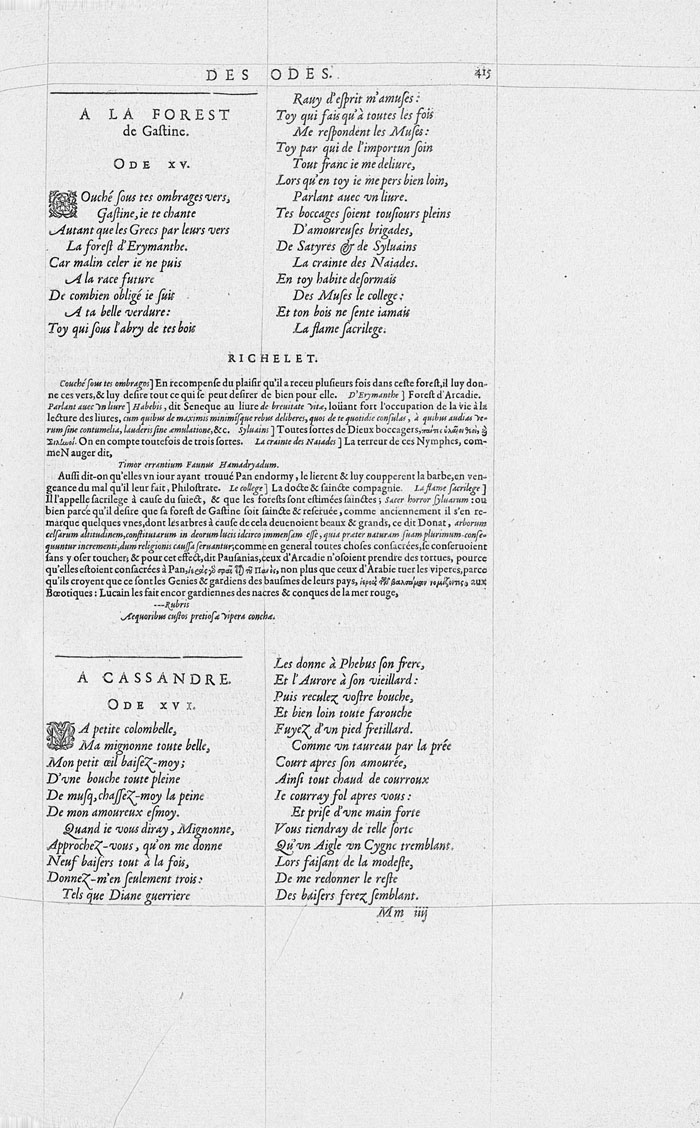 DES ODES.
415
A LA FOREST
de Gaſtine.
ODE XV.
COuché ſous tes ombrages vers,
Gaſtine, ie te chante
Autant que les Grecs par leurs vers
La foreſt d'Erymanthe.
Car malin celer ie ne puis
A la race future
De combien obligé ie ſuis
A ta belle verdure:
Toy qui ſous l'abry de tes bois
Rauy d'eſprit m'amuſes:
Toy qui fais qu'à toutes les fois
Me reſpondent les Muſes:
Toy par qui de l'importun ſoin
Tout franc ie me deliure,
Lors qu'en toy ie me pers bien loin,
Parlant auec vn liure.
Tes boccages ſoient touſiours pleins
D'amoureuſes brigades,
De Satyres & de Syluains
La crainte des Naiades.
En toy habite deſormais
Des Muſes le college:
Et ton bois ne ſente iamais
La flame ſacrilege.
RICHELET.
Couché ſous tes ombrages] En recompenſe du plaiſir qu'il a receu pluſieurs fois dans ceſte foreſt, il luy don-
ne ces vers, & luy deſire tout ce qui ſe peut deſirer de bien pour elle. D'Erymanthe] Foreſt d'Arcadie.
Parlant auec vn liure] Habebis, dit Seneque au liure de breuitate vitæ, loüant fort l'occupation de la vie à la
lecture des liures, cum quibus de maximis minimiſque rebus deliberes, quos de te quotidie conſulas, à quibus audias ve-
rum ſine contumelia, lauderis ſine amulatione, &c. Syluains] Toutes ſortes de Dieux boccagers,
On en compte toutefois de trois ſortes. La crainte des Naiades] La terreur de ces Nymphes, com-
meN auger dit,
Timor errantium Faunus Hamadryadum.
Auſſi dit-on qu'elles vn iour ayant trouué Pan endormy, le lierent & luy coupperent la barbe, en ven-
geance du mal qu'il leur fait, Philoſtrate. Le college] La docte & ſaincte compagnie. La flame ſacrilege]
Il l'appelle ſacrilege à cauſe du ſuiect, & que les foreſts ſont eſtimées ſainctes; Sacer horror ſyluarum: ou
bien parce qu'il deſire que ſa foreſt de Gaſtine ſoit ſaincte & reſeruée, comme anciennement il s'en re-
marque quelques vnes, dont les arbres à cauſe de cela deuenoient beaux & grands, ce dit Donat, arborum
celſarum altitudinem, conſtitutarum in deorum lucis idcirco immenſam eſſe, quia præter naturam ſuam plurimum conſe-
quuntur incrementi, dum religionis cauſſa ſeruantur, comme en general toutes choſes conſacrées, ſe conſeruoient
ſans y oſer toucher, & pour cet effect, dit Pauſanias, ceux d'Arcadie n'oſoient prendre des tortues, pource
qu'elles eſtoient conſacrées à Pan, non plus que ceux d'Arabie tuer les viperes, parce
qu'ils croyent que ce ſont les Genies & gardiens des bauſmes de leurs pays, aux
Bœotiques: Lucain les fait encor gardiennes des nacres & conques de la mer rouge,
---Rubris
Aequoribus cuſtos pretioſæ vipera conchæ.
A CASSANDRE.
ODE XVI.
MA petite colombelle,
Ma mignonne toute belle,
Mon petit œil baiſez-moy;
D'vne bouche toute pleine
De muſq, chaſſez-moy la peine
De mon amoureux eſmoy.
Quand ie vous diray, Mignonne,
Approchez-vous, qu'on me donne
Neuf baiſers tout à la fois,
Donnez-m'en ſeulement trois:
Tels que Diane guerriere
Les donne à Phebus ſon frere,
Et l'Aurore à ſon vieillard:
Puis reculez voſtre bouche,
Et bien loin toute farouche
Fuyez d'vn pied fretillard.
Comme vn taureau par la prée
Court apres ſon amourée,
Ainſi tout chaud de courroux
Ie courray fol apres vous:
Et priſe d'vne main forte
Vous tiendray de telle ſorte
Qu'vn Aigle vn Cygne tremblant.
Lors faiſant de la modeſte,
De me redonner le reſte
Des baiſers ferez ſemblant.
Mm iiij